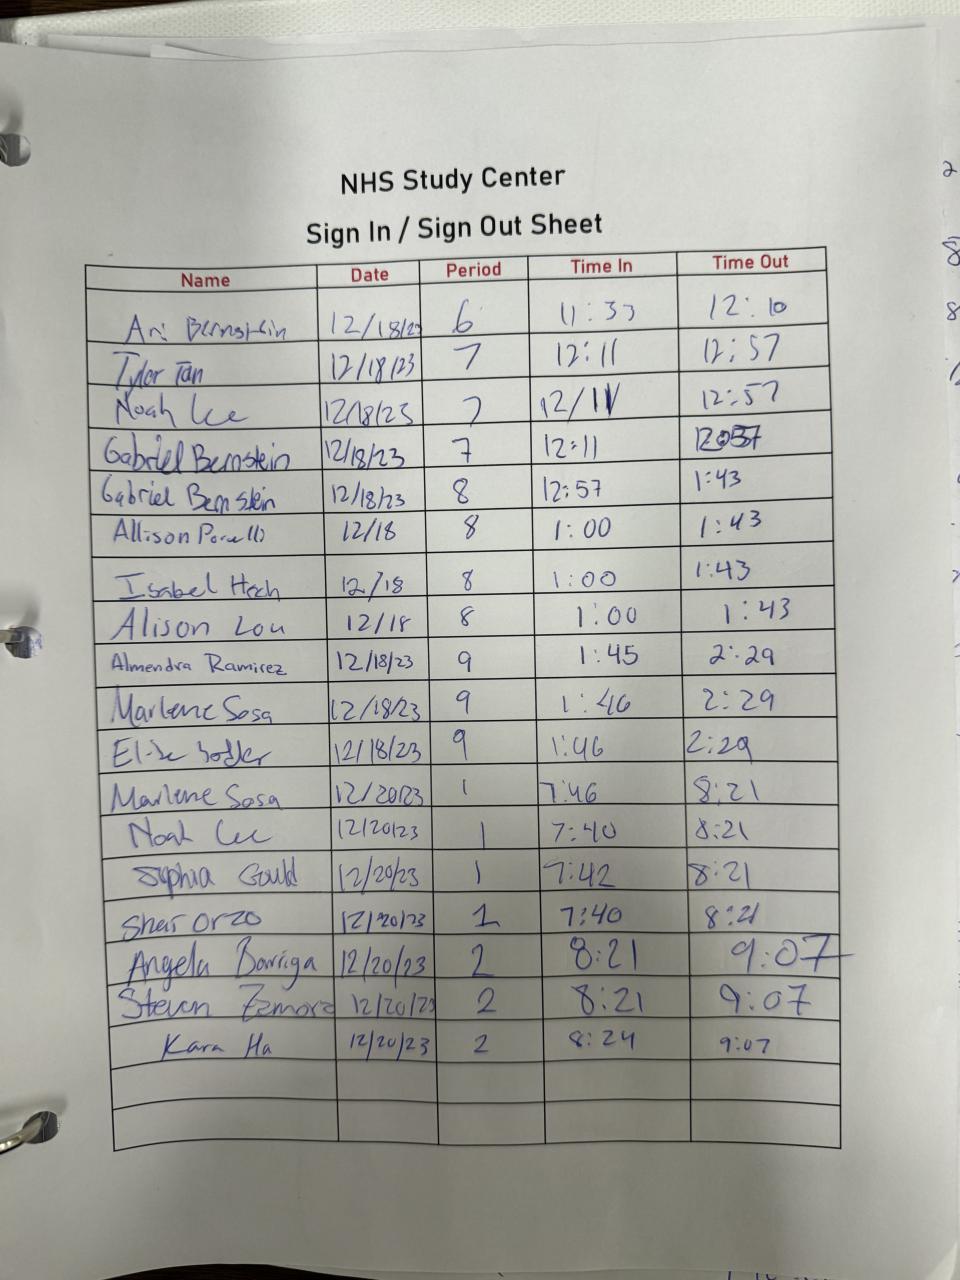 NHS Study Center
Sign In / Sign Out Sheet
Name Date Period Time In Time Out
Ari Bernstein 12/18/23 6 11:33 12:10
Tyler Tan 12/18/23 7 12:11 12:57
Noah Lee 12/18/23 7 12/11 12:57
Gabriel Bernstein 12/18/23 7 12:11
Gabriel Bernstein 12/18/23 8 12:57 1:43
Allison 12/18 8 1:00 1:43
Isabel Hoch 12/18 8 1:00 1:43
Alison Lou 12/18 8 1:00 1:43
Almendra Ramirez 12/18/23 9 1:45 2:29
Marlene Sosa 12/18/23 9 1:46 2:29
12/18/23 9 1:46 2:29
Marlene Sosa 12/20/23 1 7:46 8:21
Noah Lee 12/20/23 1 7:40 8:21
Sophia Gould 12/20/23 1 7:42 8:21
Orzo 12/20/23 1 7:40 8:21
Angela Barriga 12/20/23 2 8:21 9:07
Steven Zamora 12/20/23 2 8:21 9:07
Kara Ha 12/20/23 2 8:24 9:07